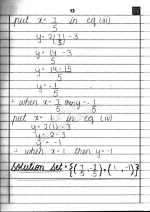 13
put x = 7/5 in eq (iii)
y = 2(7/5) - 3
y = 14/5 - 3
y = 14 - 15/5
y = -1/5
∴ when x = 7/5 then y = -1/5
put x = 1 in eq (iii)
y = 2(1) - 3
y = 2 - 3
y = -1
∴ when x = 1 then y = -1
Solution Set = {(7/5, -1/5), (1, -1)}